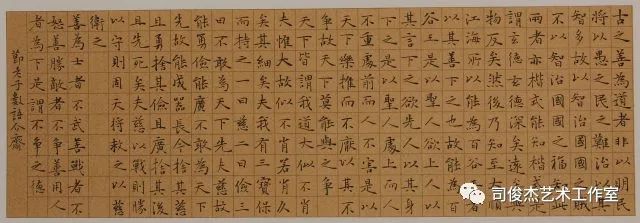 古之善為道者非以明民
將以愚之民之難治以其
智多故以智治國國之賊
不以智治國國之福知此
兩者亦楷式能知楷式是
謂玄德玄德深矣遠矣與
物反矣然後乃至大順
江海所以能為百谷王者
以其善下之故能為百
谷王是以聖人欲上人以
其言下之欲先人以其身
下之是以聖人處上而人
不重處前而人不害是以
天下樂推而不厭以其不
爭故天下莫能與之爭
天下皆謂我道大似不肖
夫惟大故似不肖若肖久
矣其細矣夫我有三寶保
而持之一曰慈二曰儉三
曰不敢為天下先夫慈故
能勇儉能廣不敢為天下
先故能成器長今捨其慈
且勇捨其儉且廣捨其後
且先死矣夫慈以戰則勝
以守則固天將救之以慈
衛之
善為士者不武善戰者不
怒善勝敵者不爭善用人
者為下是謂不爭之德
節老子數語介齋
司俊杰艺术工作室